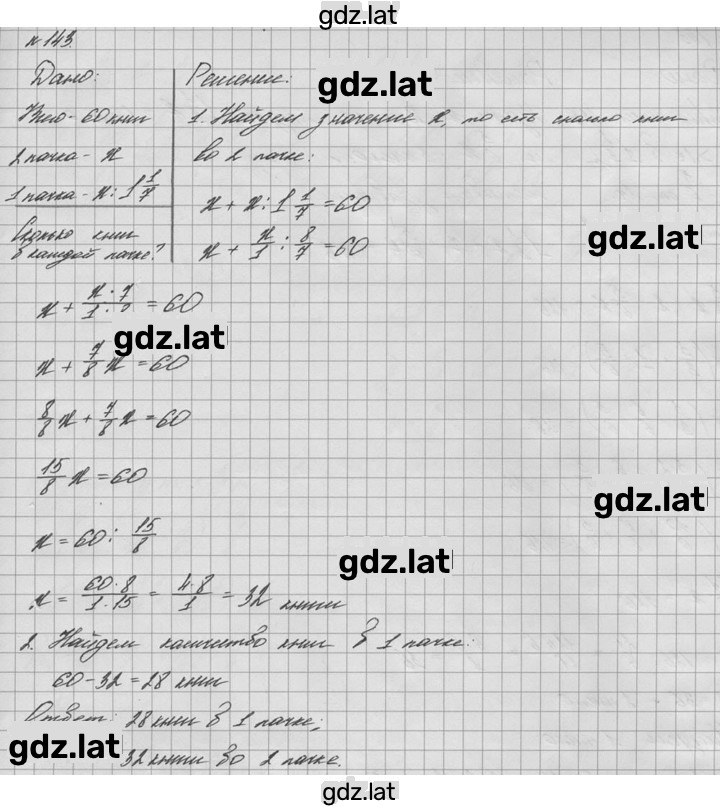 gdz.lat
№ 143.
Дано:
Всего - 60 книг
2 пачка - x
1 пачка - x : 1 1/7
Сколько книг
в каждой пачке?
Решение:
gdz.lat
1. Найдем значение x, то есть сколько книг
во 2 пачке:
x + x : 1 1/7 = 60
gdz.lat
x + x/1 : 8/7 = 60
x + (x · 7)/(1 · 8) = 60
gdz.lat
x + 7/8 x = 60
8/8 x + 7/8 x = 60
15/8 x = 60
gdz.lat
x = 60 : 15/8
gdz.lat
x = (60 · 8)/(1 · 15) = (4 · 8)/1 = 32 книги
2. Найдем количество книг в 1 пачке:
60 - 32 = 28 книг
Ответ: 28 книг в 1 пачке;
gdz.lat
32 книги во 2 пачке.
gdz.lat